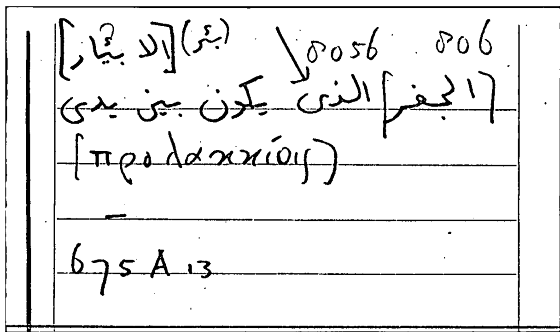 [الا بئار] (بئر) 8056 806
[الجفر] الذى يكون بين يدى
(προλακκίοις)
–
675 A 13